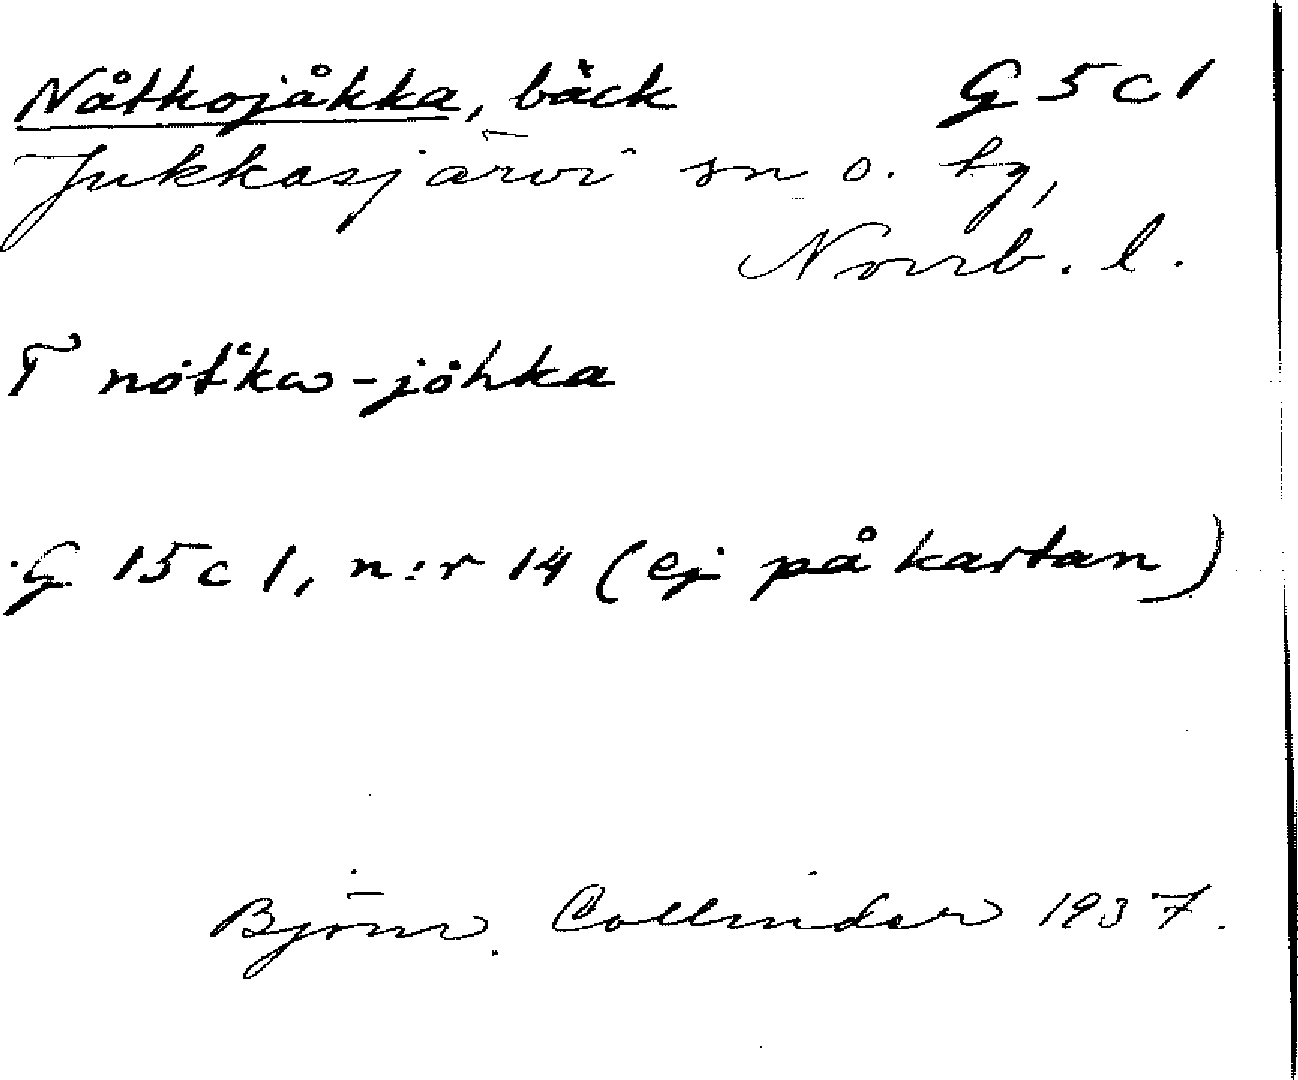 Nåtkojåkka, bäck G 5 c 1
Jukkasjärvi sn o. tg,
Norrb. l.
T nȯt̔kω-jȯhka
G 15 c 1, n:r 14 (ej på kartan)
Björn Collinder 1937.